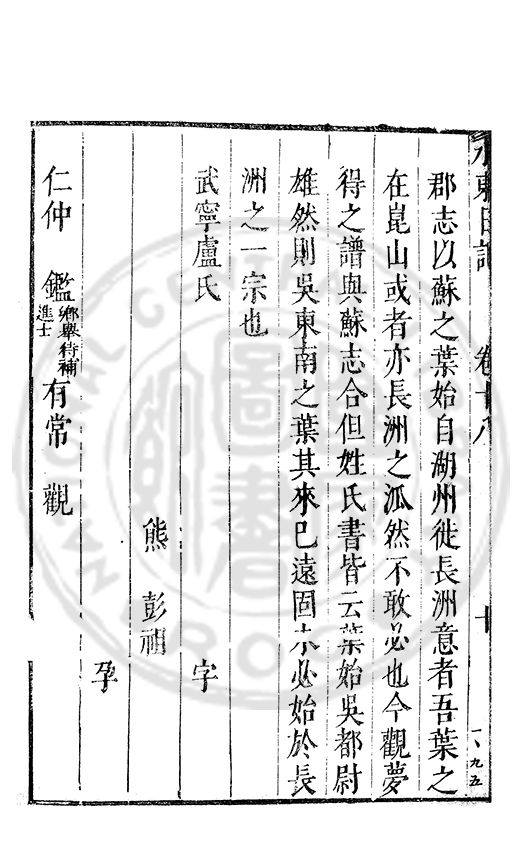 水東日記　卷十八　十　一、九五
郡志以蘇之葉始自湖州徙長洲意者吾葉之
在崑山或者亦長洲之派然不敢必也今觀夢
得之譜與蘇志合但姓氏書皆云葉始吳都尉
雄然則吳東南之葉其來已遠固未必始於長
洲之一宗也
武寧盧氏　　字
熊　彭祖
孕
仁仲　鑑鄉舉待補進士有常　觀